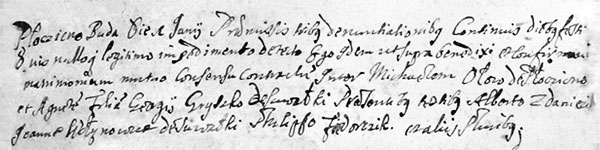 Płociczno Buda Die 2 Junij Præmissis tribus denuntiationibus Continuis diebus festi
vis nulloq legitimo impedimento detecto Ego Idem ut supra benedixi et Confirmavi
matrimonium mutuo Consensu Contractu Inter Michaelem de Płociczno
et Agnete Filia Georgij Gryszko de Suwałki Præsentibus testibus Alberto Zdaniewicz
Joanne de Suwałki Philippo Fedorczik aliis Pluribus